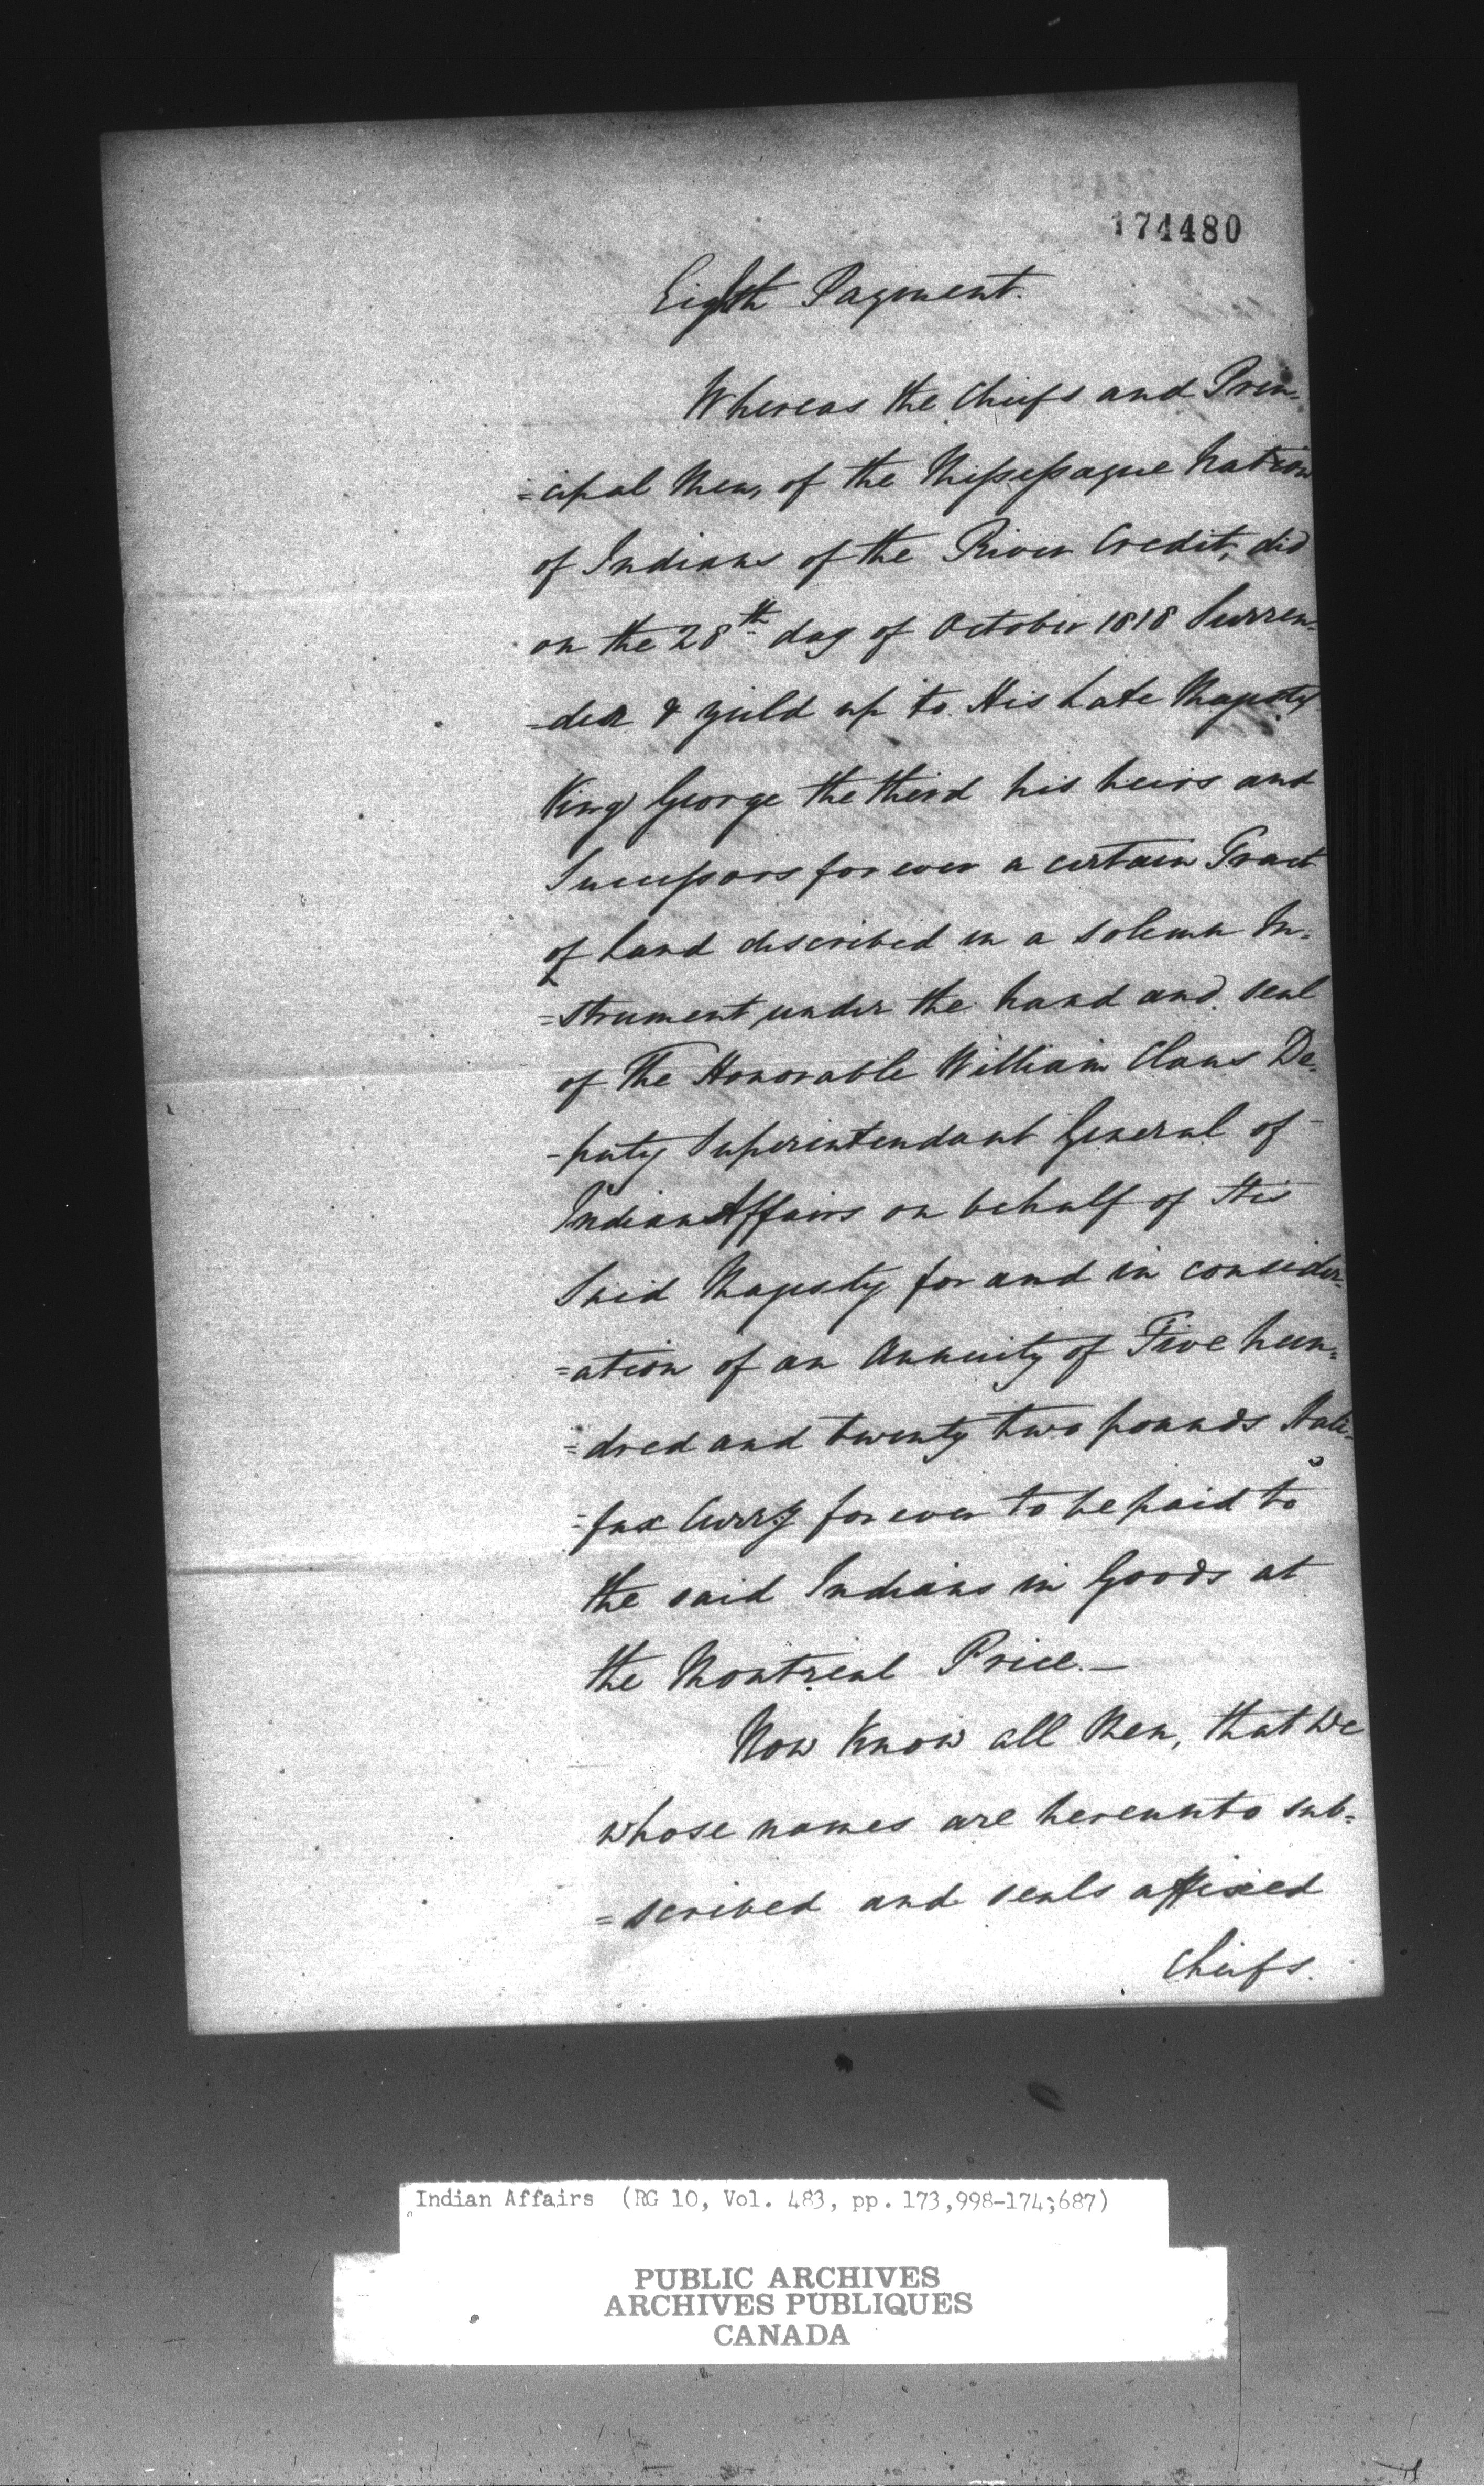 174480
Eighth Payment.
Whereas the Chiefs and Prin-
=cipal Men, of the Missessague Nation
of Indians of the River Credit, did
on the 28th day of October 1818 Surren-
-der & yield up to His Late Majesty
King George the third his heirs and
Successors for ever a certain Tract
of Land discribed in a solemn In=
=strument under the hand and seal
of The Honorable William Claus De-
-puty Superintendant General of
Indian Affairs on behalf of His
Said Majesty for and in consider-
=ation of an Annuity of Five hun=
=dred and twenty two pounds Hali-
=fax Curry for ever to be paid to
the said Indians in Goods at
the Montreal Price.—
Now Know all Men, that We
whose names are hereunto sub=
=scribed and seals affixed
Chiefs.
Indian Affairs (RG 10, Vol. 483, pp. 173,998-174;687)
PUBLIC ARCHIVES
ARCHIVES PUBLIQUES
CANADA